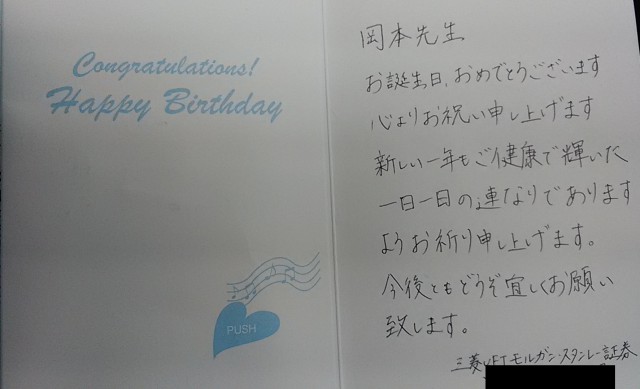 Congratulations!
Happy Birthday
PUSH
岡本先生
お誕生日、おめでとうございます
心よりお祝い申し上げます
新しい一年もご健康で輝いた
一日一日の連なりであります
ようお祈り申し上げます。
今後ともどうぞ宜しくお願い
致します。
三菱UFJモルガン・スタンレー証券